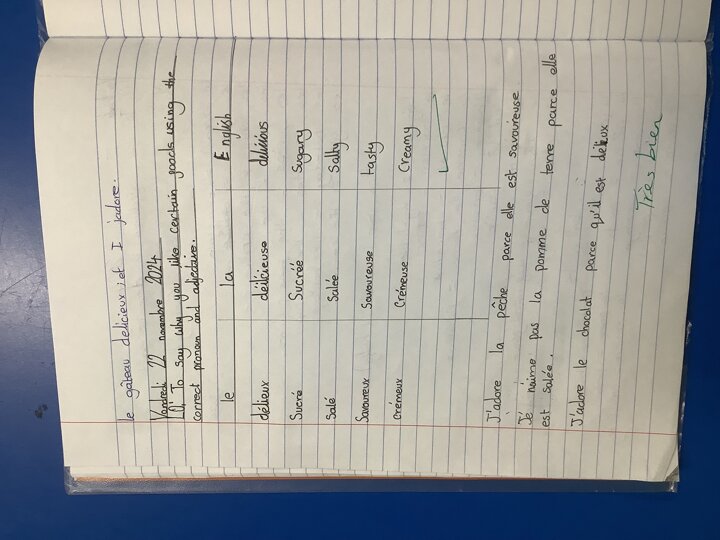 le gâteau delicieux ;et I j'adore.
Vandredi 22 novembre 2024
LO: To say why you like certain goods using the
correct pronoun and adjective.
le la English
délieux délicieuse delisious
Sucré Sucréé Sugary
Salé Salée Salty
Savoureux Savoureuse tasty
Crémeux Crémeuse Creamy
J'adore la pêche parce elle est savoureuse
Je n'aime pas la pomme de terre parce elle
est salée.
J'adore le chocolat parce qu'il est délieux
Très bien